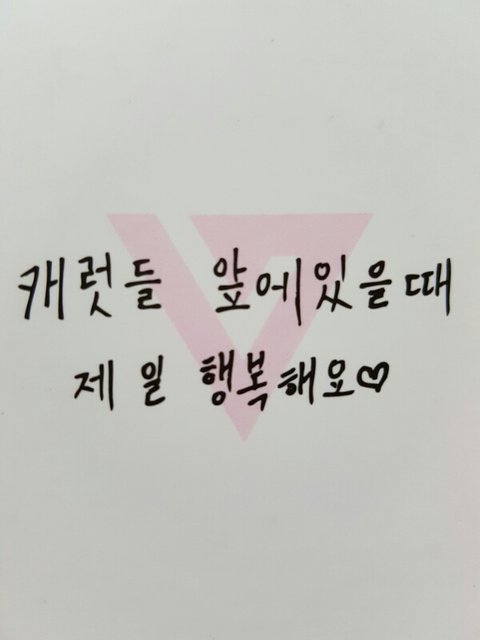 캐럿들 앞에있을때
제일 행복해요♡